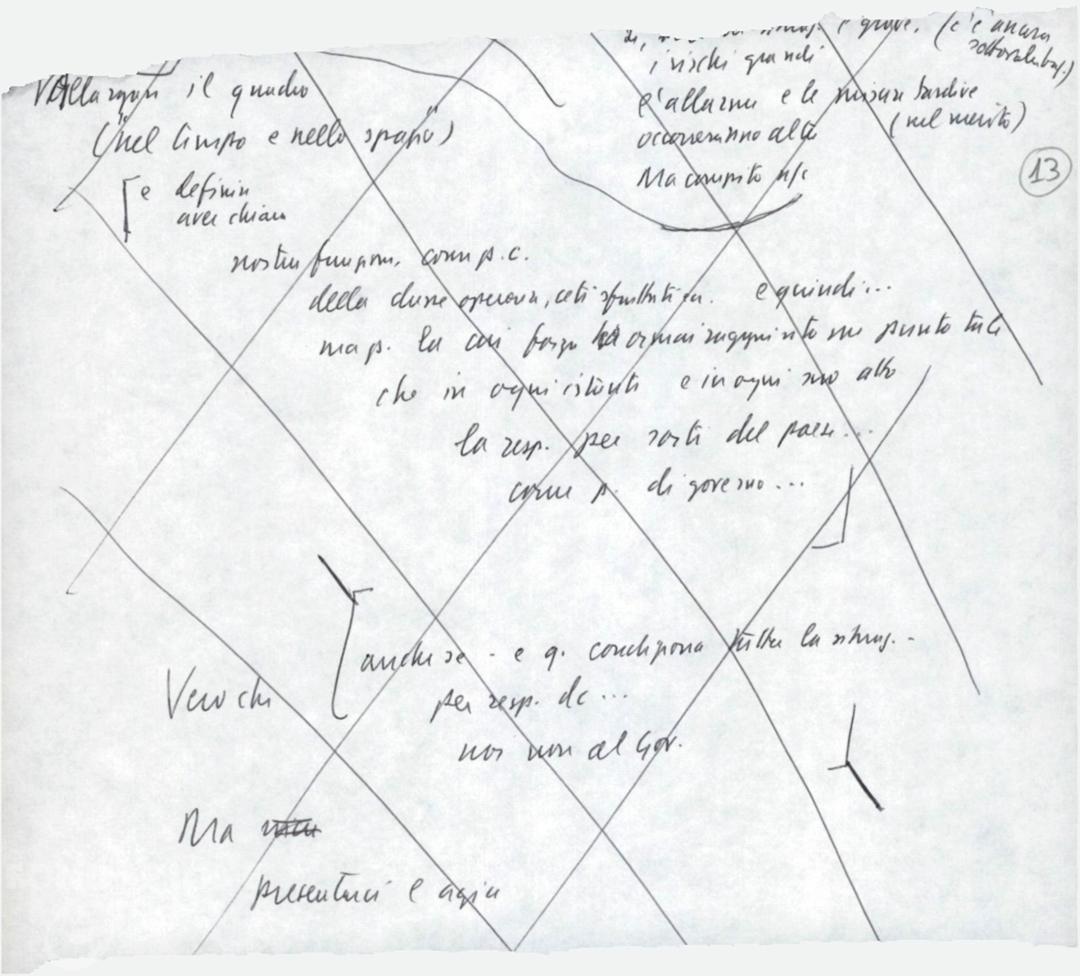 Allargare il quadro
("nel tempo e nello spazio")
è grave. (c'è ancora
sottovalutaz.)
i rischi grandi
è allarme e le misure tardive
(nel merito)
occorreranno altre
Ma compito n/s
13
e definire
aver chiara
nostra funzione come p. c.
della classe operaia, ceti sfruttati e quindi...
ma p. la cui forza ha ormai raggiunto un punto tale
che in ogni e in ogni suo atto
la resp. per sorti del paese...
come p. di governo...
Vero che
anche se - e q. condiziona tutta la situaz. -
per resp. dc...
noi non al Gov.
Ma
presentarci e agire